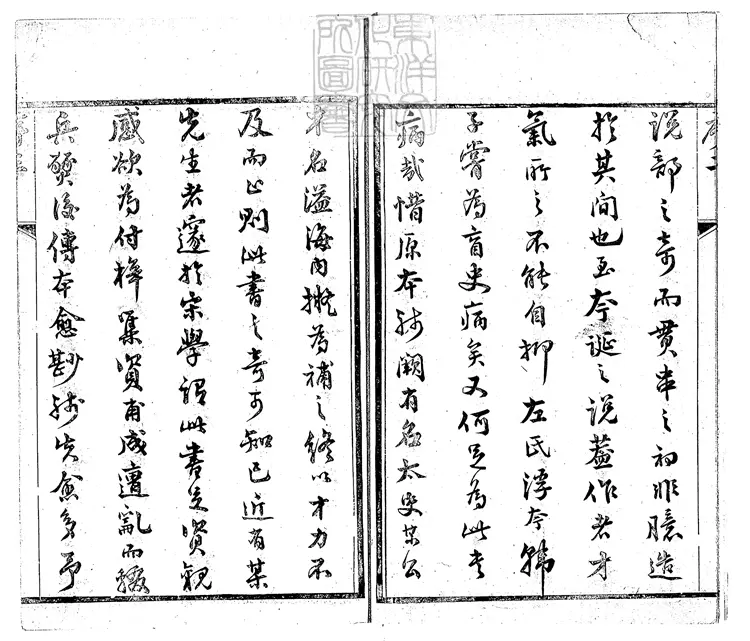 序二
說部之奇而貫串之初非臆造
於其間也至夸誕之說蓋作者才
氣所之不能自抑左氏浮夸韓
子嘗為盲史病矣又何足為此書
病哉惜原本殘闕有名太史某公
才名溢海內擬為補之終以才力不
及而止則此書之奇可知已近有某
先生者邃於宋學謂此書足資觀
感欲為付梓集資甫成遭亂而輟
兵燹後傳本愈尠殘失愈多予
東洋文
化研究
所圖書